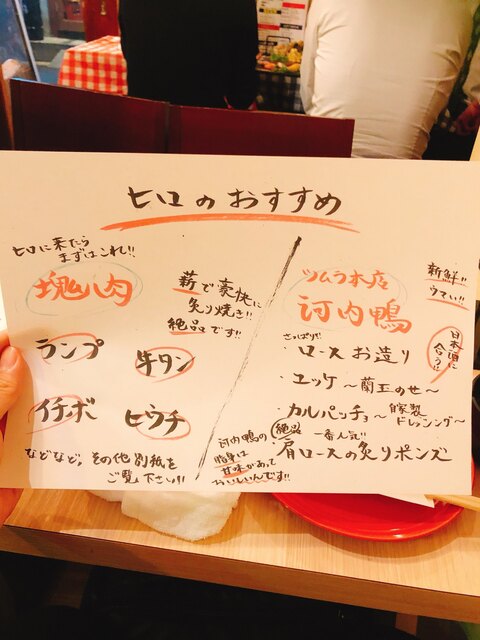 ヒロのおすすめ
ヒロに来たら
まずはこれ!!
塊肉
薪で豪快に
炙り焼き!!
絶品です!!
ランプ
牛タン
イチボ
ヒウチ
などなど、その他別紙を
ご覧下さい!!
ツムラ本店
河内鴨
新鮮!!
ウマい!!
日本酒に
合う!!
さっぱり!!
・ロースお造り
・ユッケ～蘭王のせ～
・カルパッチョ～自家製
ドレッシング～
絶品
一番人気!!
肩ロースの炙りポンズ
河内鴨の
脂身は
甘味があって
おいしいんです!!